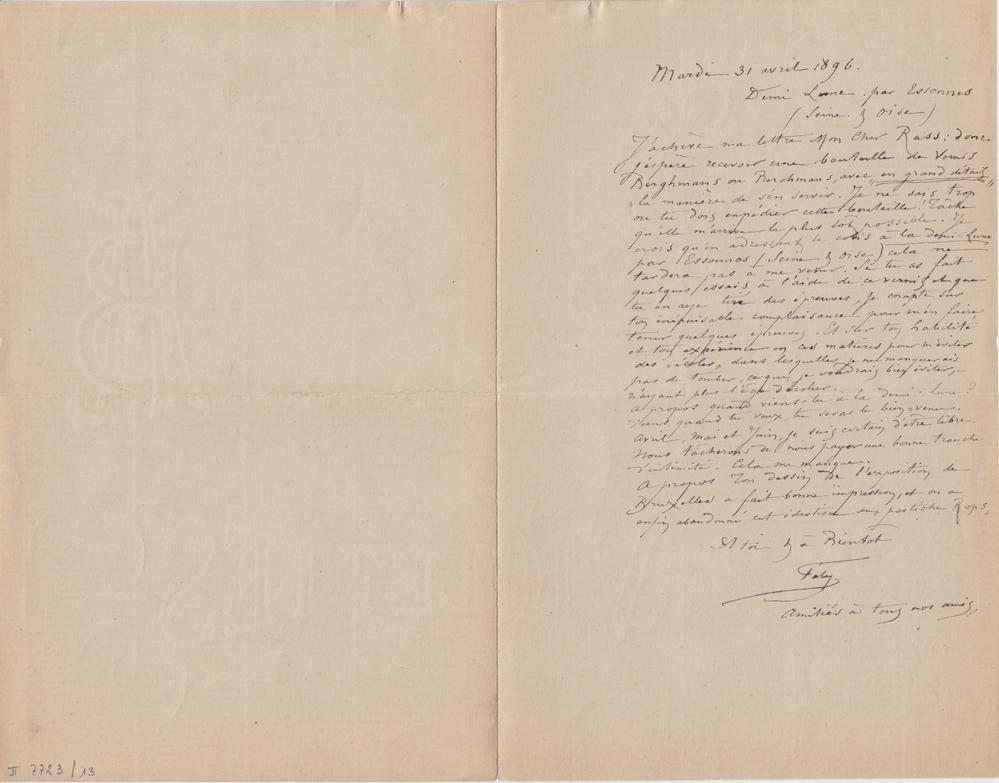 Mardi 31 avril 1896.
Demi Lune. par Essonnes
(Seine & Oise)
J'achève ma lettre Mon Cher Rass: donc
j'espère recevoir une bouteille de Vernis
Berghmans ou Berchmans, avec, en grand détail,
"la manière de s'en servir. Je ne sais trop
ou tu dois expédier cette bouteille! Tâche
qu'elle m'arrive le plus tôt possible. Je
crois qu'en adressant le colis à la demi-Lune
par Essonnes (Seine & Oise) cela ne
tardera pas à me venir. Si tu as fait
quelques essais à l'aide de ce vernis et que
tu en aye tiré des épreuves, je compte sur
ton inépuisable complaisance pour m'en faire
tenir quelques épreuves. Et sur ton habilité
et ton expérience en ces matières pour m'éviter
des "écoles" dans lesquelles je ne manquerais
pas de tomber, ce que je voudrais bien éviter,
n'ayant plus l'âge d'écolier.
A propos quand viens-tu à la demi-lune?
Viens quand tu veux, tu seras le bien-venu.
Avril, Mai et Juin, je suis certain d'être libre.
Nous tacherons de nous payer une bonne tranche
d'intimité. Cela me manque.
A propos Ton dessin de l'exposition de
Bruxelles a fait bonne impression, et on a
enfin abandonné cet idiotisme du pastiche Rops.
A toi & à Bientôt
Fély
Amitiés à tous nos amis,
II 7723 / 13